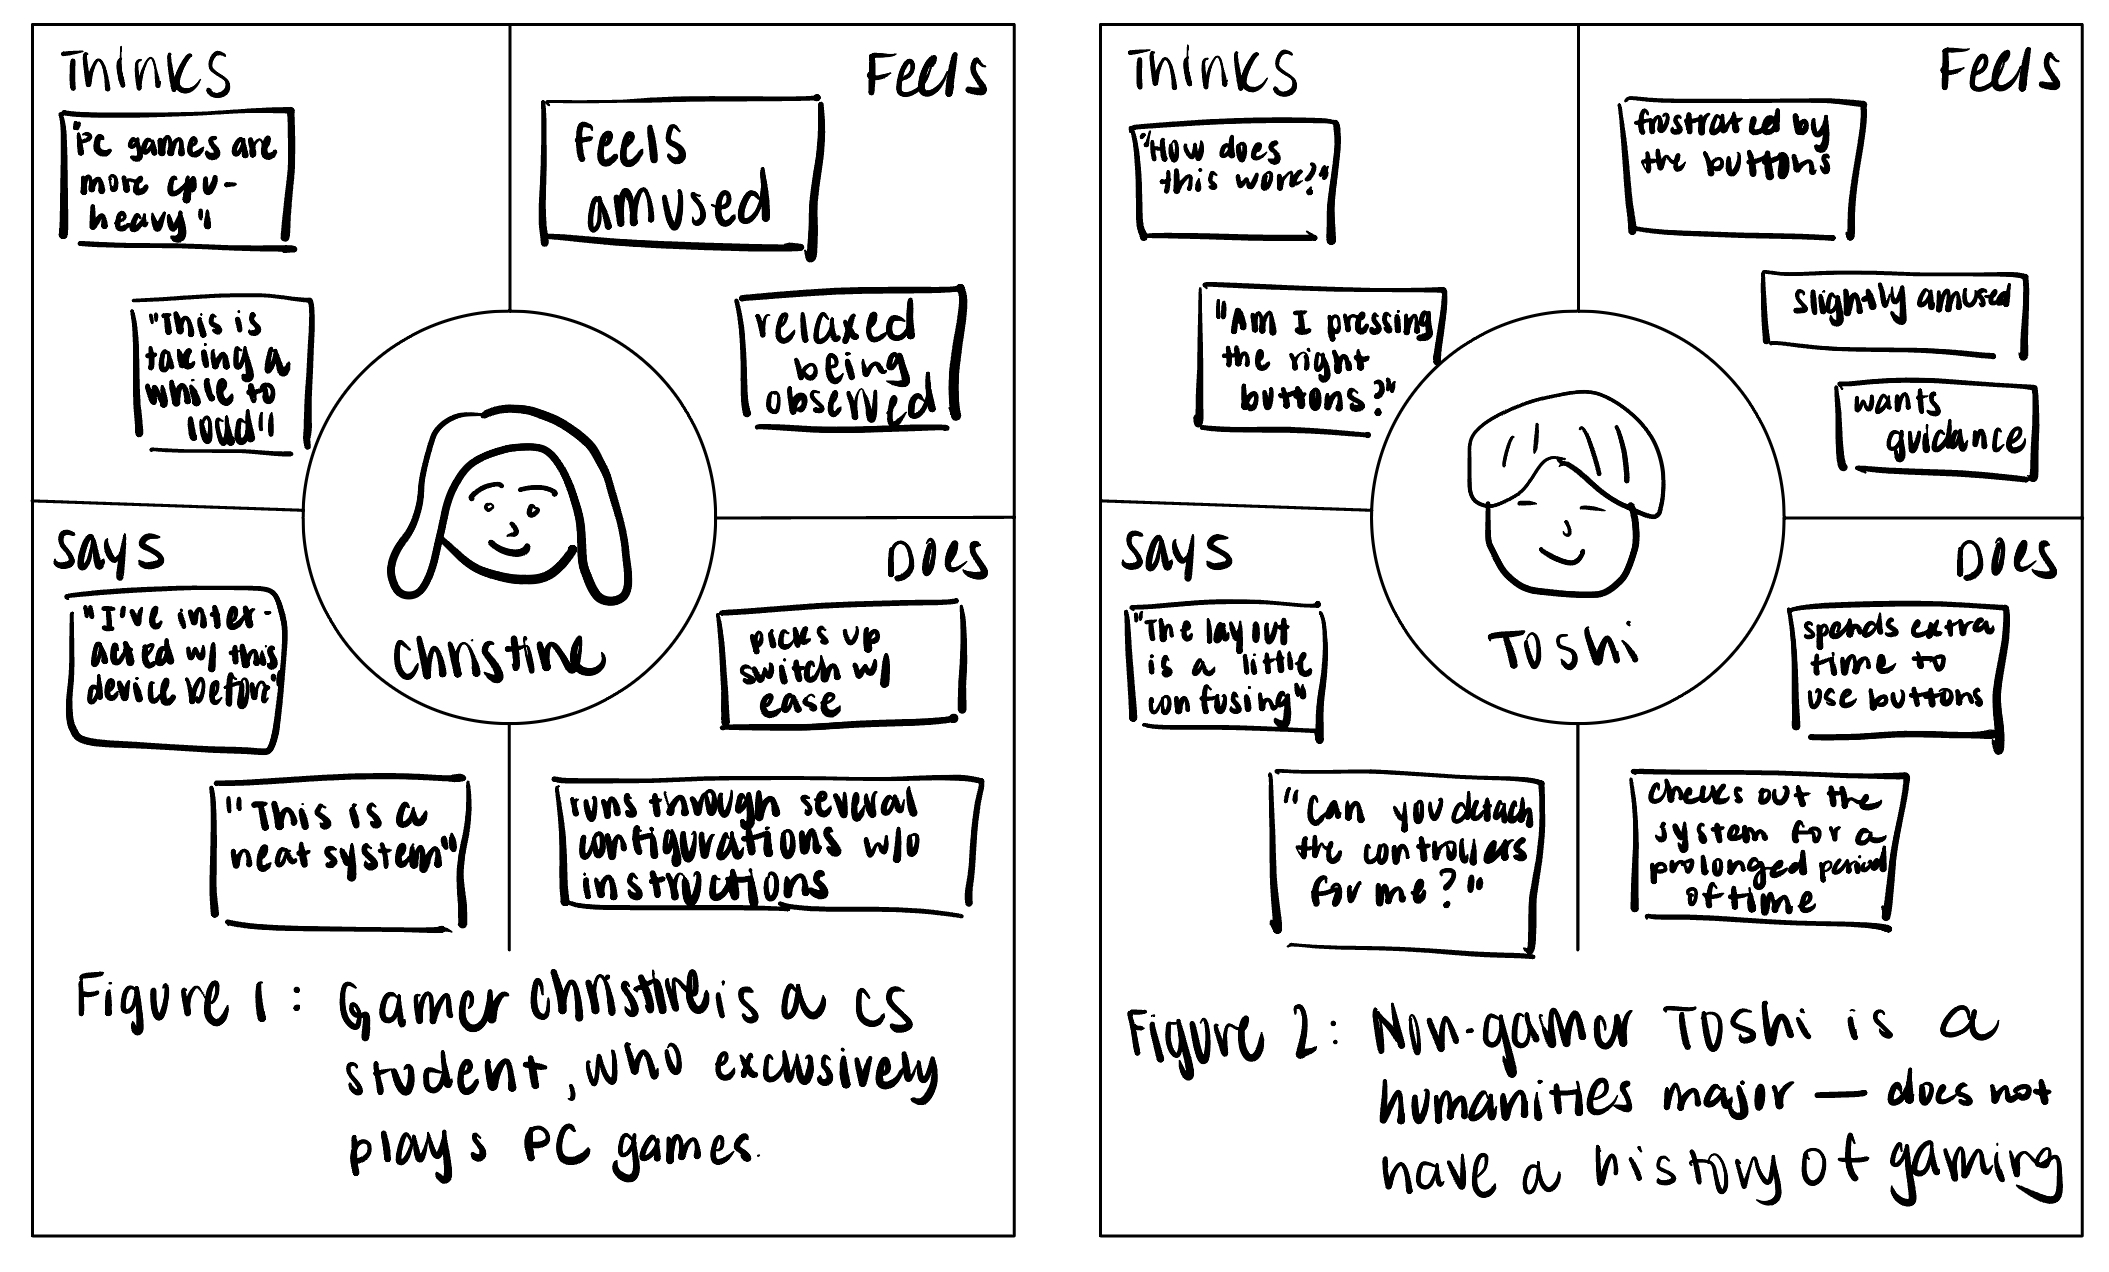 Thinks
"PC games are
more cpu-
heavy"
"This is
taking a
while to
load"
Feels
Feels
amused
relaxed
being
observed
Says
"I've inter-
acted w/ this
device before"
"This is a
neat system"
Does
picks up
switch w/
ease
runs through several
configurations w/o
instructions
Christine
Figure 1: Gamer Christine is a CS
student, who exclusively
plays PC games.
Thinks
"How does
this work?"
"Am I pressing
the right
buttons?"
Feels
frustrated by
the buttons
slightly amused
wants
guidance
Says
"The layout
is a little
confusing"
"Can you detach
the controllers
for me?"
Does
spends extra
time to
use buttons
checks out the
system for a
prolonged period
of time
Toshi
Figure 2: Non-gamer Toshi is a
humanities major — does not
have a history of gaming